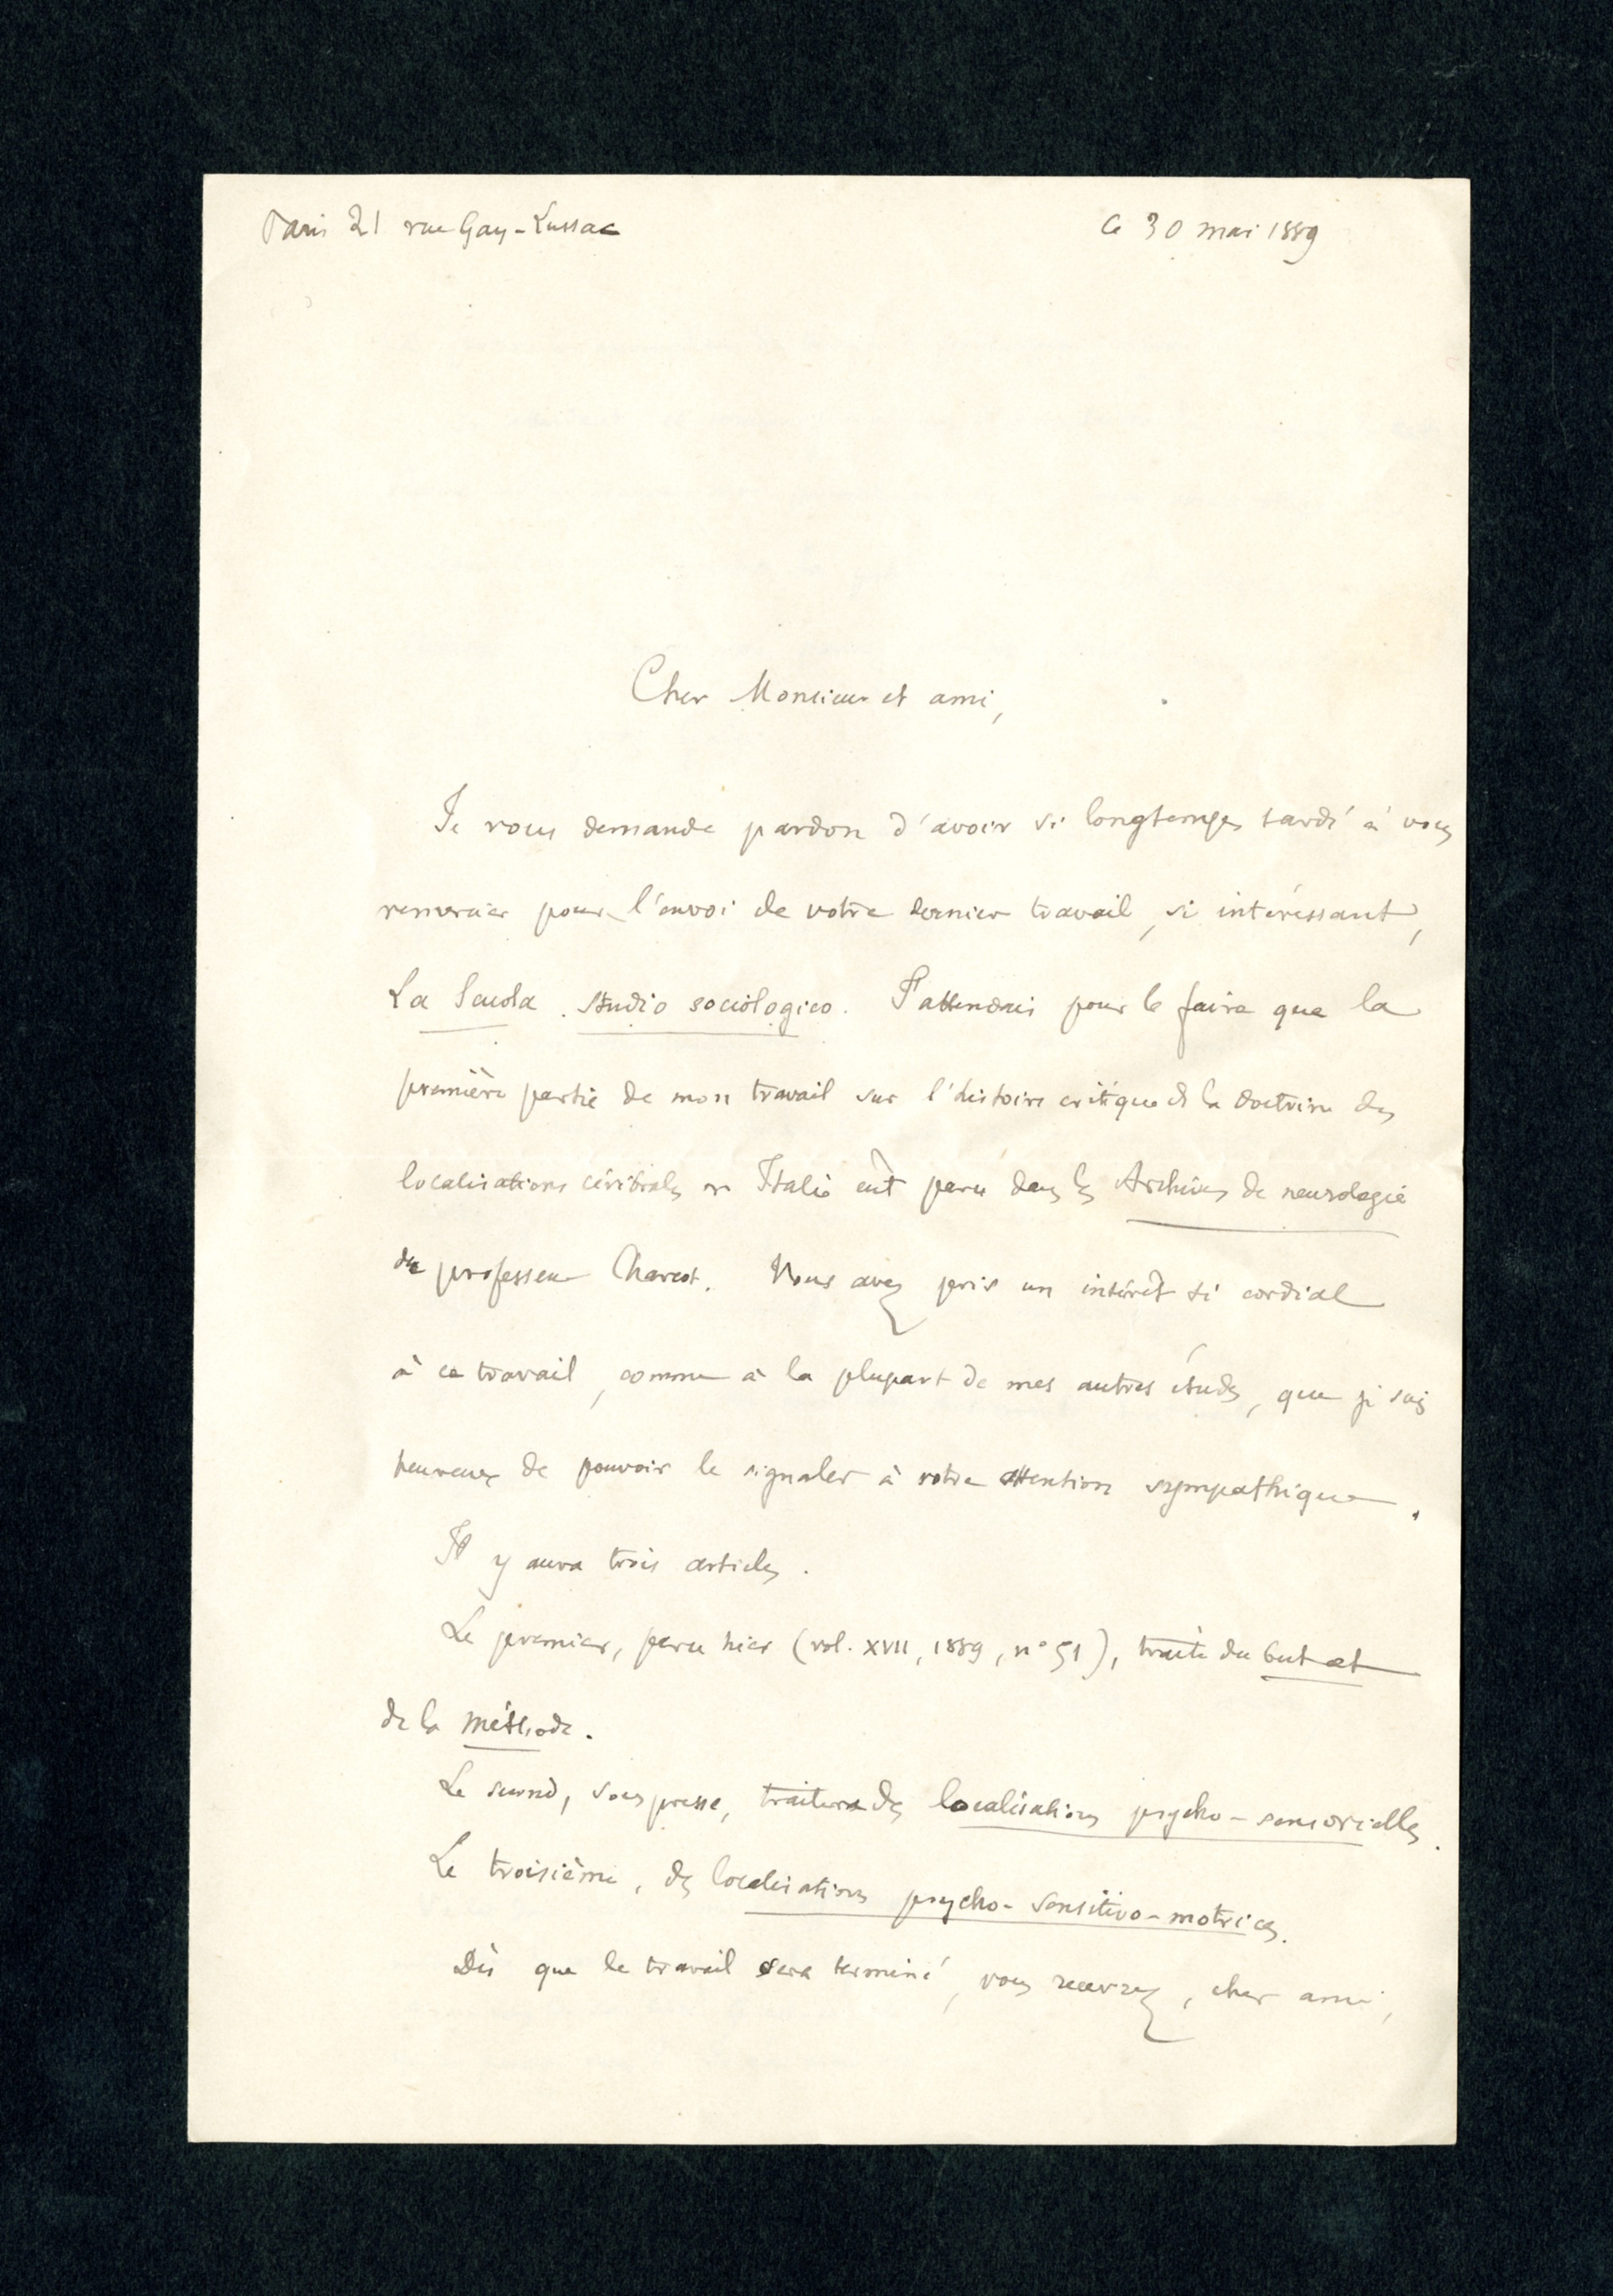 Paris 21 rue Gay-Lussac
Ce 30 mai 1889
Cher Monsieur et ami,
Je vous demande pardon d'avoir si longtemps tardé à vous
remercier pour l'envoi de votre dernier travail, si intéressant,
La Scuola. Studio sociologico. J'attendais pour le faire que la
première partie de mon travail sur l'histoire critique de la doctrine des
localisations cérébrales en Italie eût paru dans les Archives de neurologie
du professeur Charcot. Vous avez pris un intérêt si cordial
à ce travail, comme à la plupart de mes autres études, que je suis
heureux de pouvoir le signaler à votre attention sympathique.
Il y aura trois articles.
Le premier, paru hier (vol. XVII, 1889, n° 51), traite du but et
de la méthode.
Le second, sous presse, traitera des localisations psycho-sensorielles.
Le troisième, des localisations psycho-sensitivo-motrices.
Dès que le travail sera terminé, vous recevrez, cher ami,